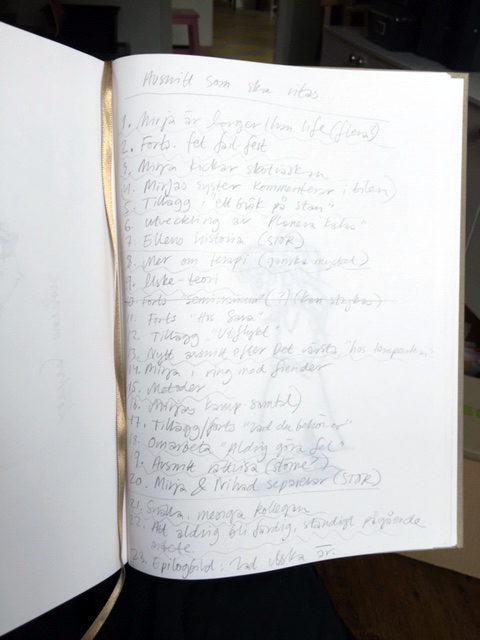 Avsnitt som ska ritas
1. Mirja är larger than life (flera?)
2. Forts. fet fail fest
3. Mirja kickar sköterskan
4. Mirjas syster kommenterar i bilen)
5. Tillägg i "ett bråk på stan"
6. utveckling av "Planera kalas"
7. Ellens historia (STOR)
8. Mer om terapi (ganska mycket)
9. Ilske-teori
10. Forts "seminarium" (?) (kan strykas)
11. Forts "Hos Sara"
12. Tillägg "Utflykt"
13. Nytt avsnitt efter Det värsta "hos terapeuten"
14. Mirja i ring med fiender
15. Metoder
16. Mirjas kamp-samtal)
17. Tillägg/forts "vad du behöver"
18. Omarbeta "Aldrig göra fel"
19. Avsnitt rädvisa (större?)
20. Mirja & Nihad separerar (STOR)
21. Snälla, meniga kollegan
22. Att aldrig bli färdig, ständigt pågående
arbete
23. Epilogbild: Vad ilska är.